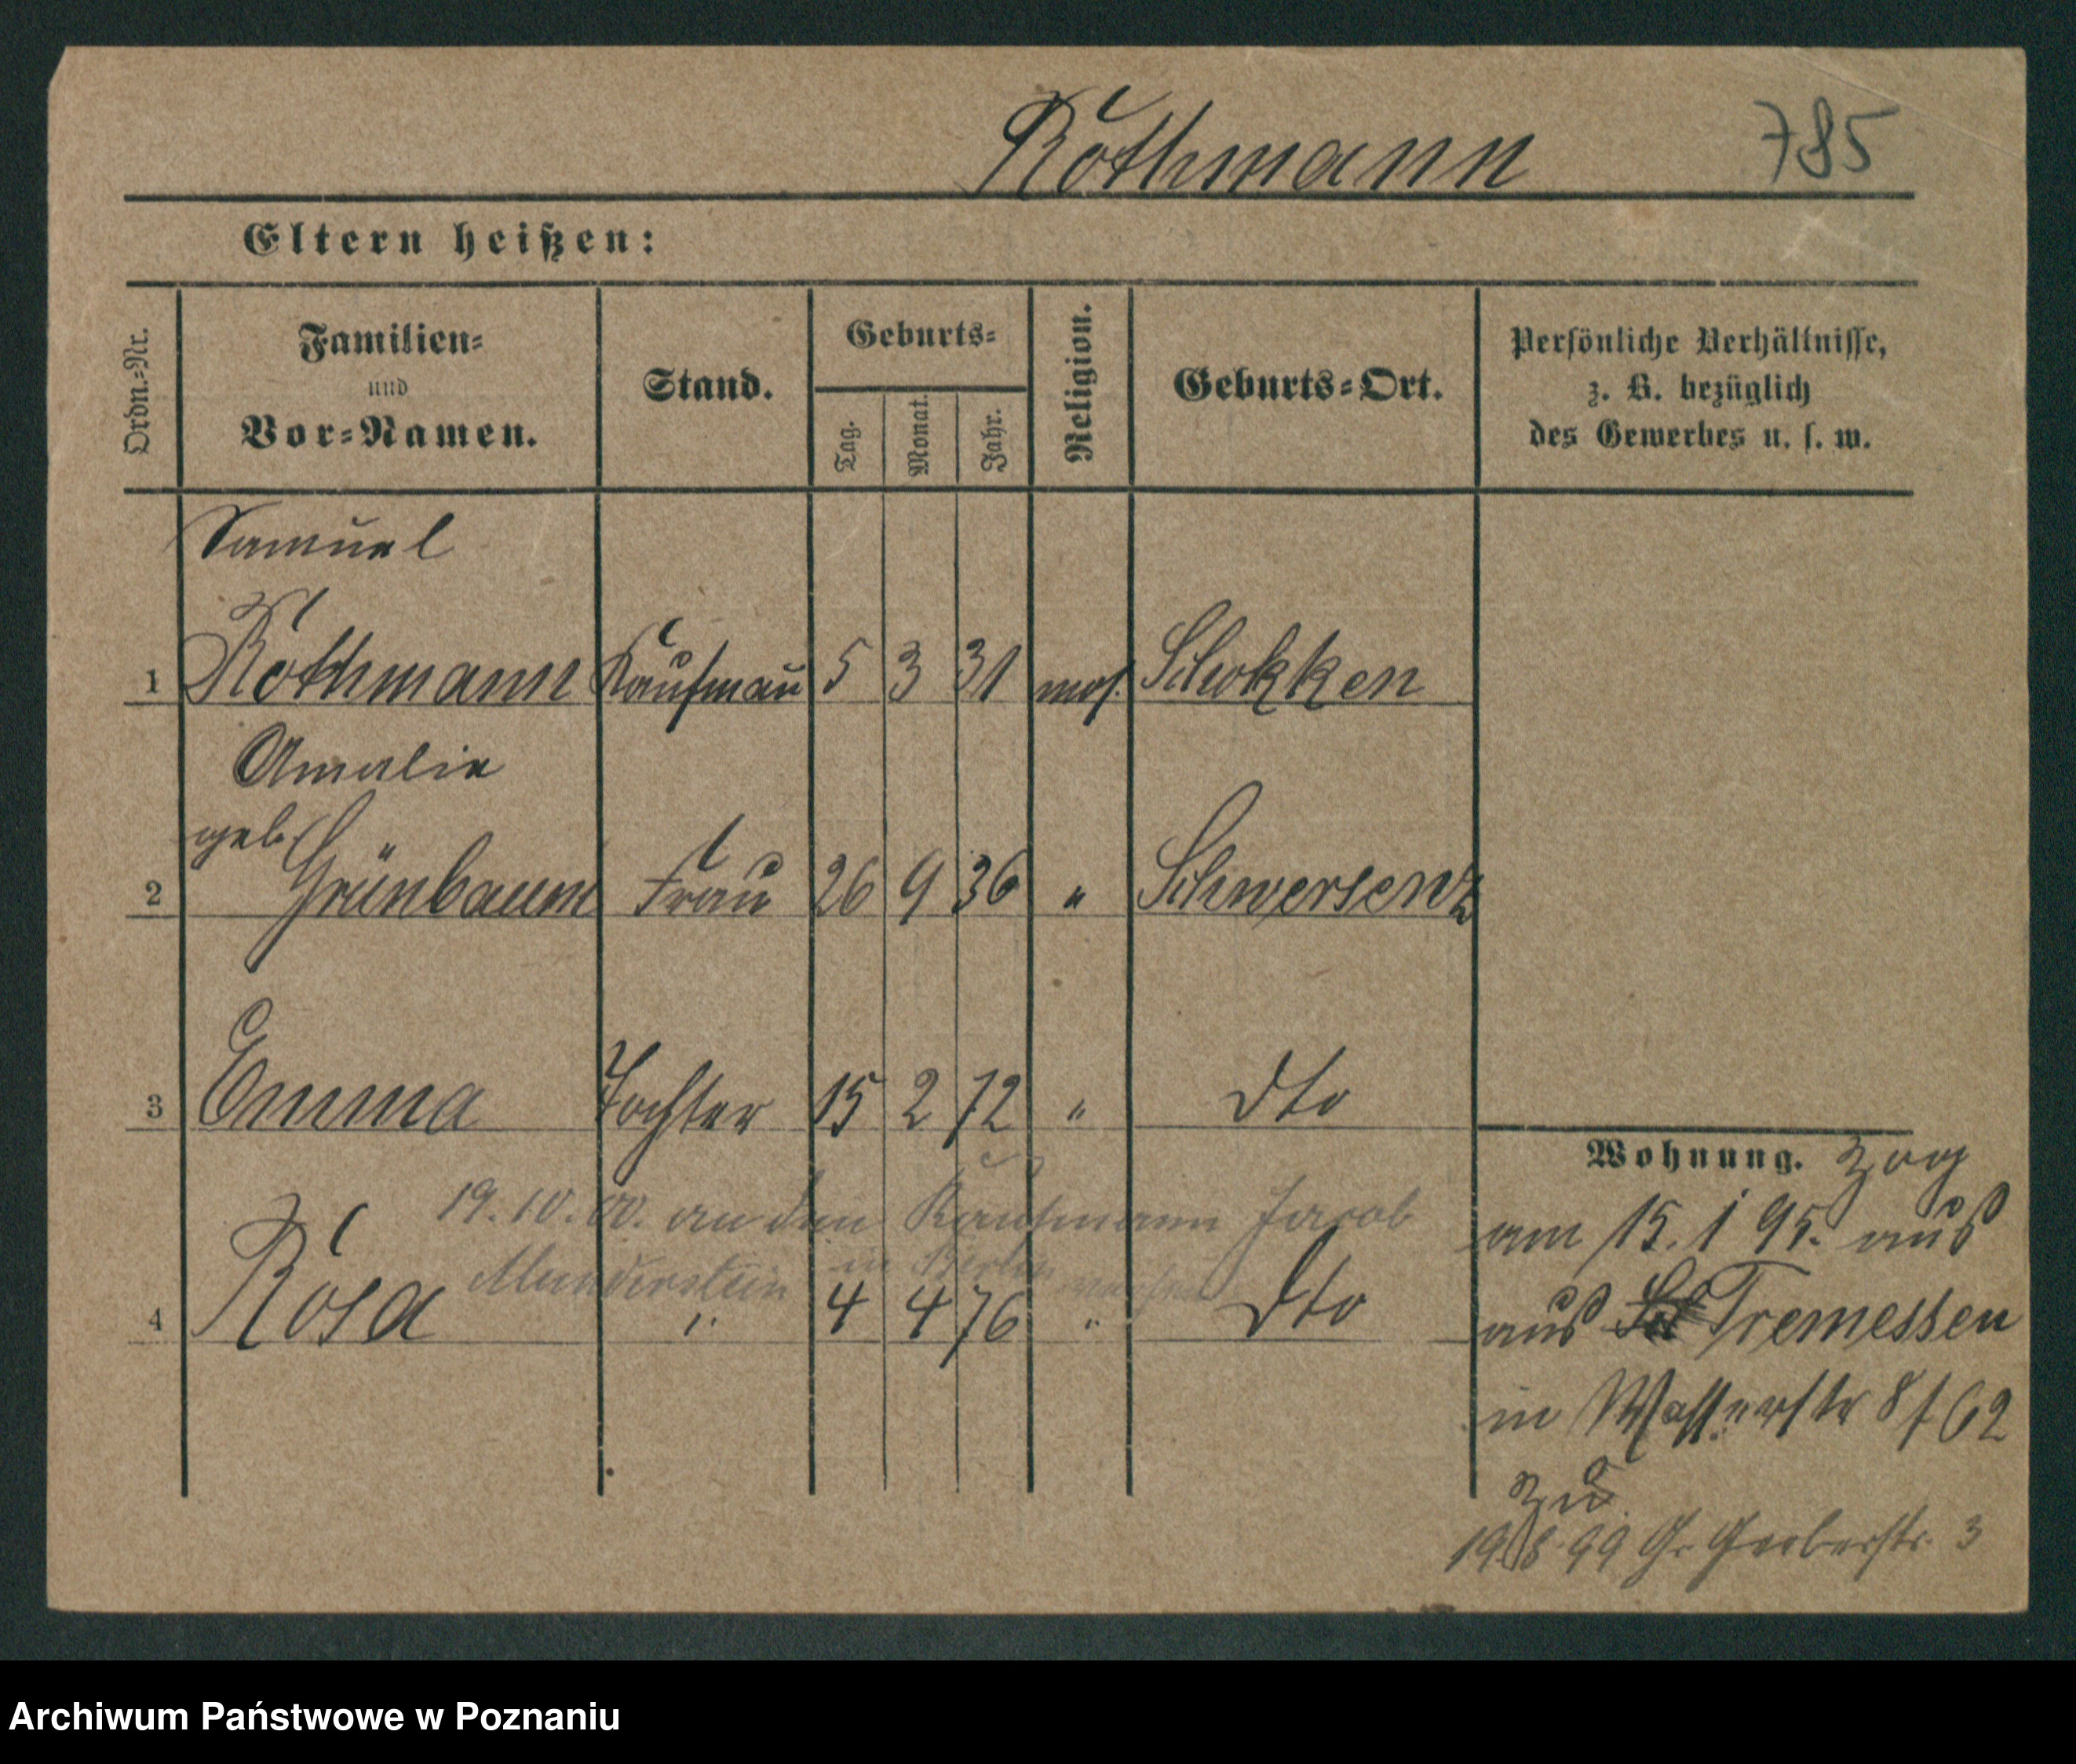 Rothmann 785
Eltern heißen:
Ordn.-Nr.
Familien-
und
Vor-Namen.
Stand.
Geburts-
Tag.
Monat.
Jahr.
Religion.
Geburts-Ort.
Persönliche Verhältnisse,
z. B. bezüglich
des Gewerbes u. s. w.
Samuel
1 Rothmann Kaufmann 5 3 31 mos. Schokken
Amalie
geb.
2 Grünbaum Frau 26 9 36 " Schwersenz
3 Emma Tochter 15 2 72 " Dto
19.10.00. an den Kaufmann Jacob
Munderstein in Berlin
4 Rosa " 4 4 76 " Dto
Wohnung. zog
am 15.1 95. aus
aus Tremessen
in Wasserstr 8/62
zu.
19.8.99 Gr Gerberstr. 3
Archiwum Państwowe w Poznaniu